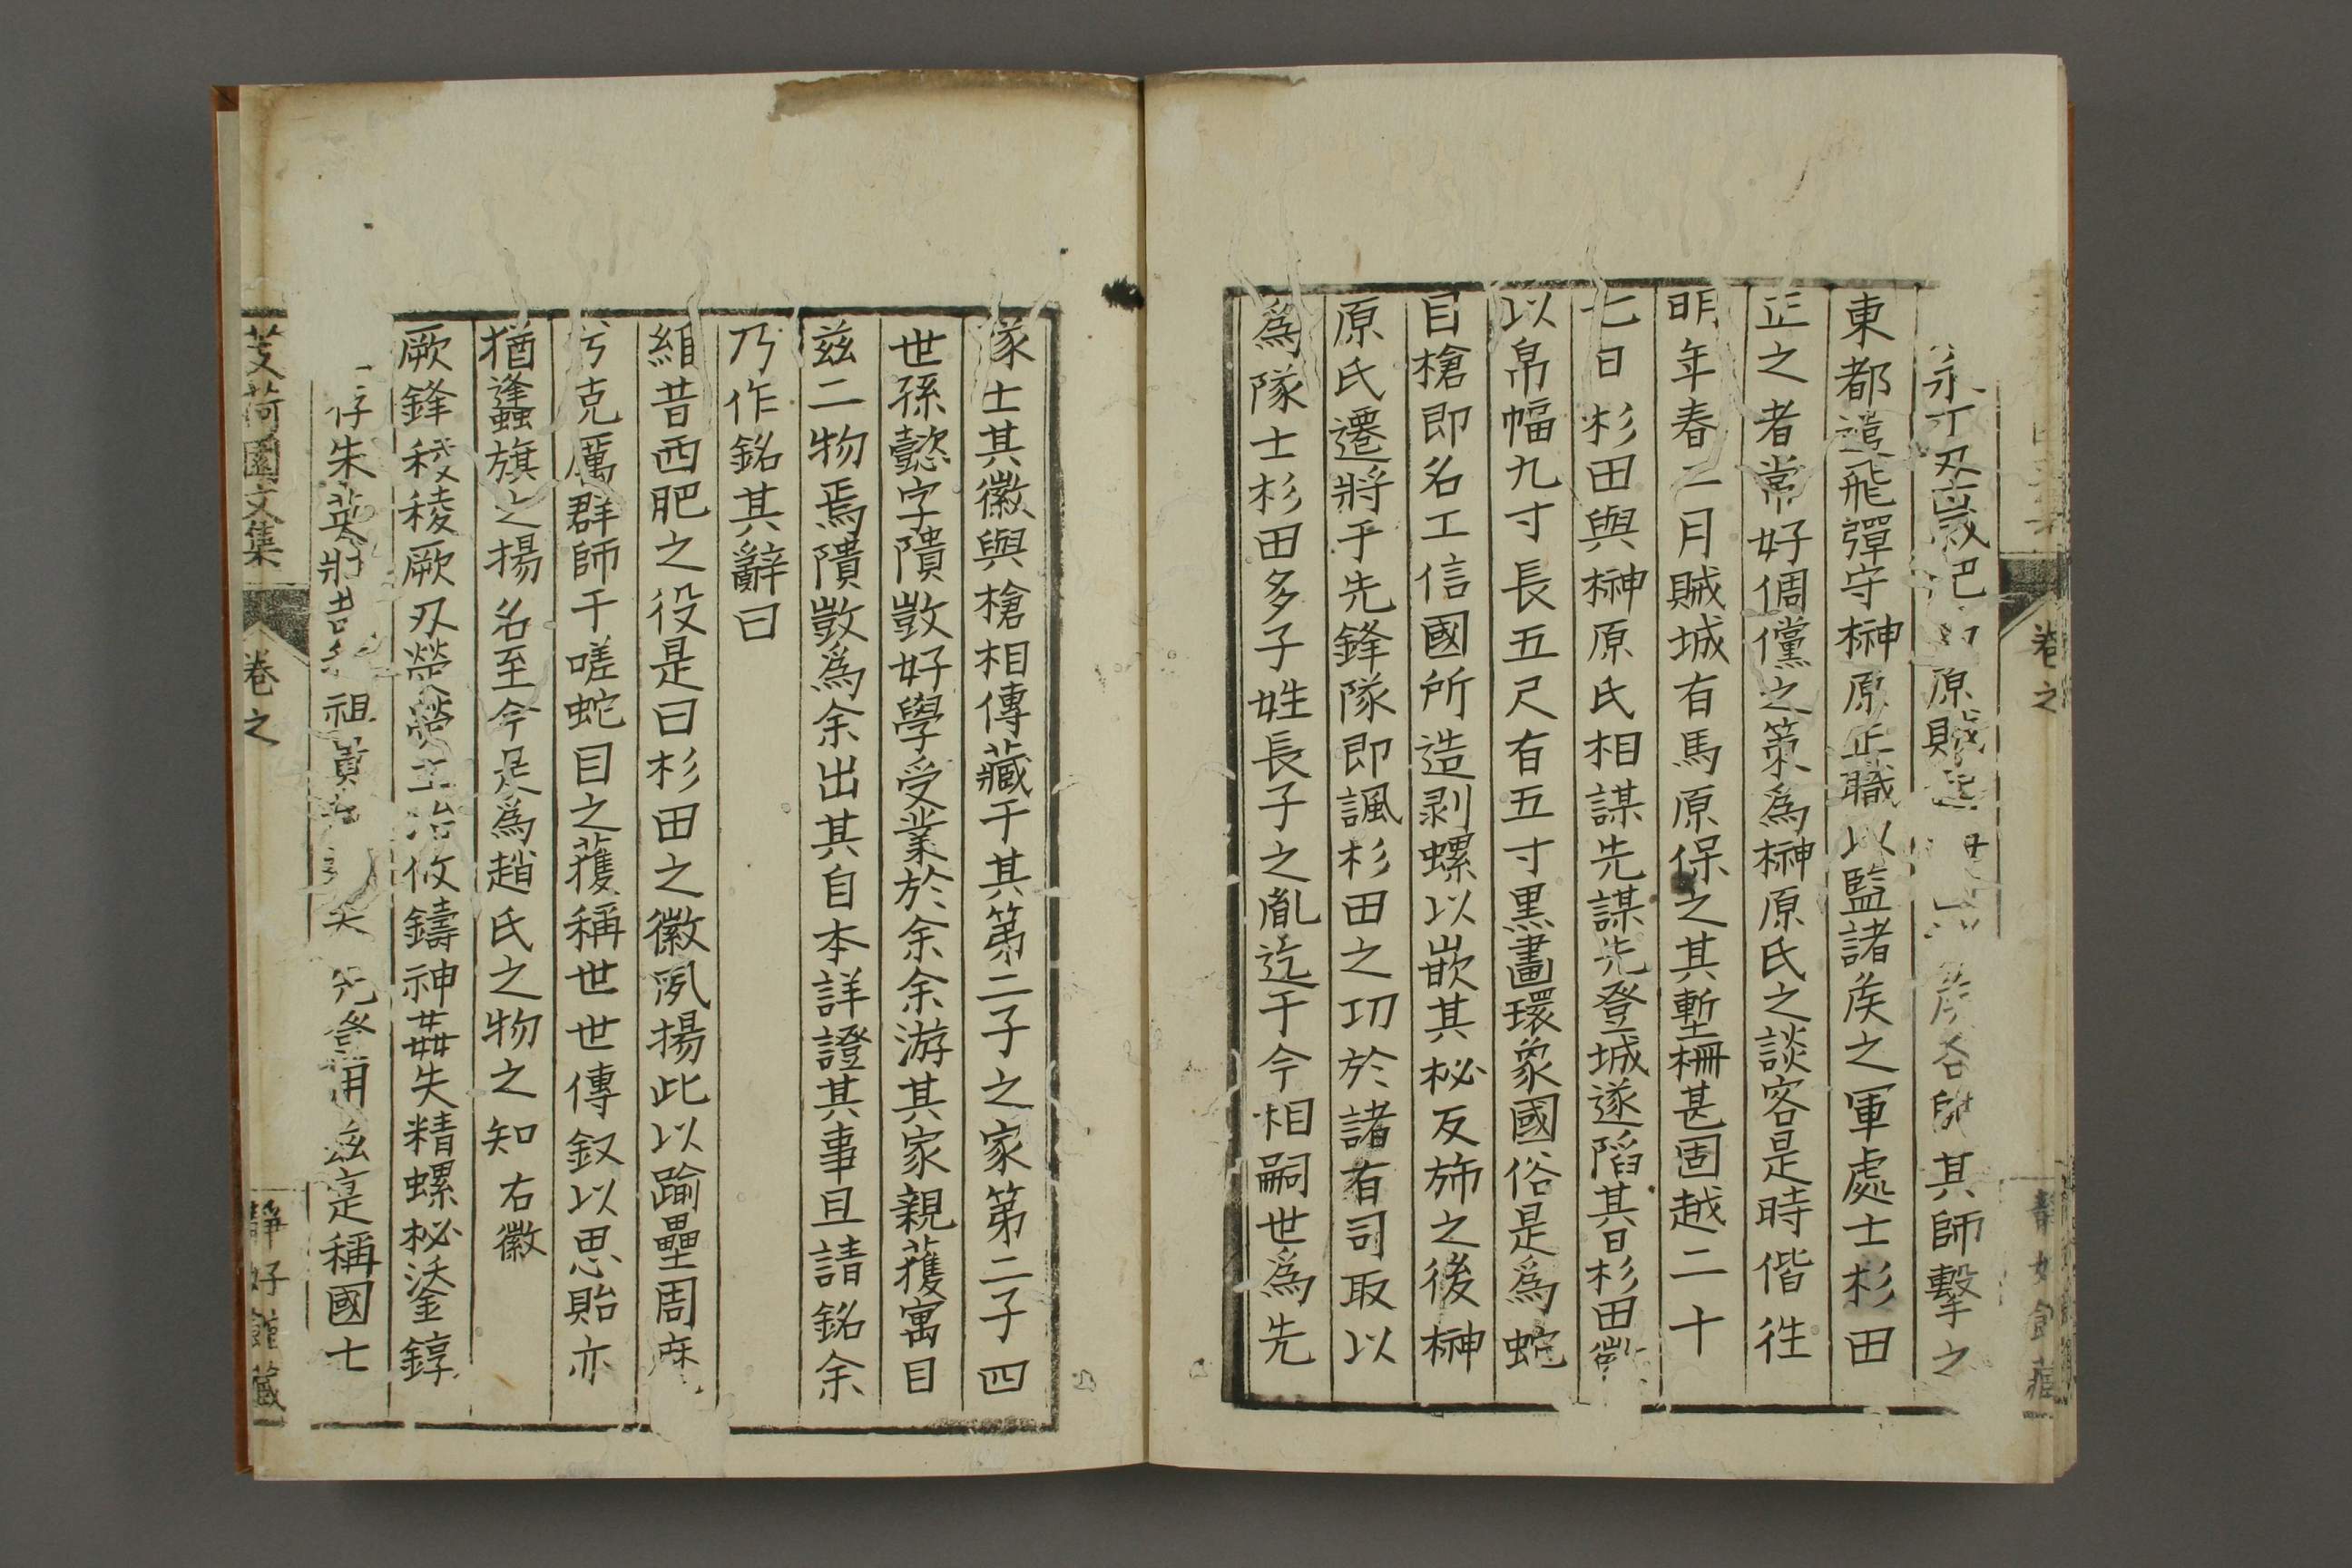 永丁丑歲肥原賊起侯各帥其師擊之
東都遣飛彈守榊原正職以監諸矦之軍處士杉田
正之者常好倜儻之策為榊原氏之談客是時偕往
明年春二月賊城有馬原保之其塹柵甚固越二十
七日杉田與榊原氏相謀先謀先登城遂陷其日杉田徽
以帛幅九寸長五尺有五寸黒畫環象國俗是為蛇
目槍即名工信國所造剥螺以嵌其柲反斾之後榊
原氏遷將于先鋒隊即諷杉田之功於諸有司取以
為隊士杉田多子姓長子之胤迄于今相嗣世為先
隊士其徽與槍相傳藏于其第二子之家第二子四
世孫懿字隤敳好學受業於余余游其家親獲寓目
茲二物焉隤敳為余出其自本詳證其事且請銘余
乃作銘其辭曰
維昔西肥之役是曰杉田之徽夙揚此以踰壘周麻
兮克厲群師于嗟蛇目之獲稱世世傳釵以思貽亦
猶蠭旗之揚名至今是為趙氏之物之知 右徽
厥鋒稜稜厥刃熒熒工冶攸鑄神姦失精螺柲鋈錞
存朱英壯祖先登用茲是稱國士
芰荷園文集 卷之 靜好館藏
卷之 靜好館藏